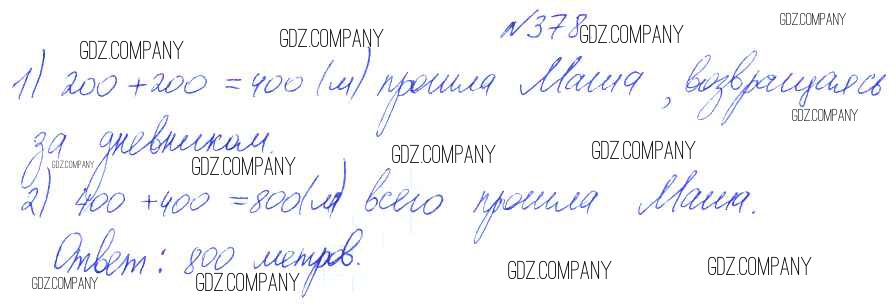 №378
1) 200 + 200 = 400 (м) прошла Маша, возвращаясь
за дневником.
2) 400 + 400 = 800 (м) всего прошла Маша.
Ответ: 800 метров.
GDZ.COMPANY
GDZ.COMPANY
GDZ.COMPANY
GDZ.COMPANY
GDZ.COMPANY
GDZ.COMPANY
GDZ.COMPANY
GDZ.COMPANY
GDZ.COMPANY
GDZ.COMPANY
GDZ.COMPANY
GDZ.COMPANY
GDZ.COMPANY